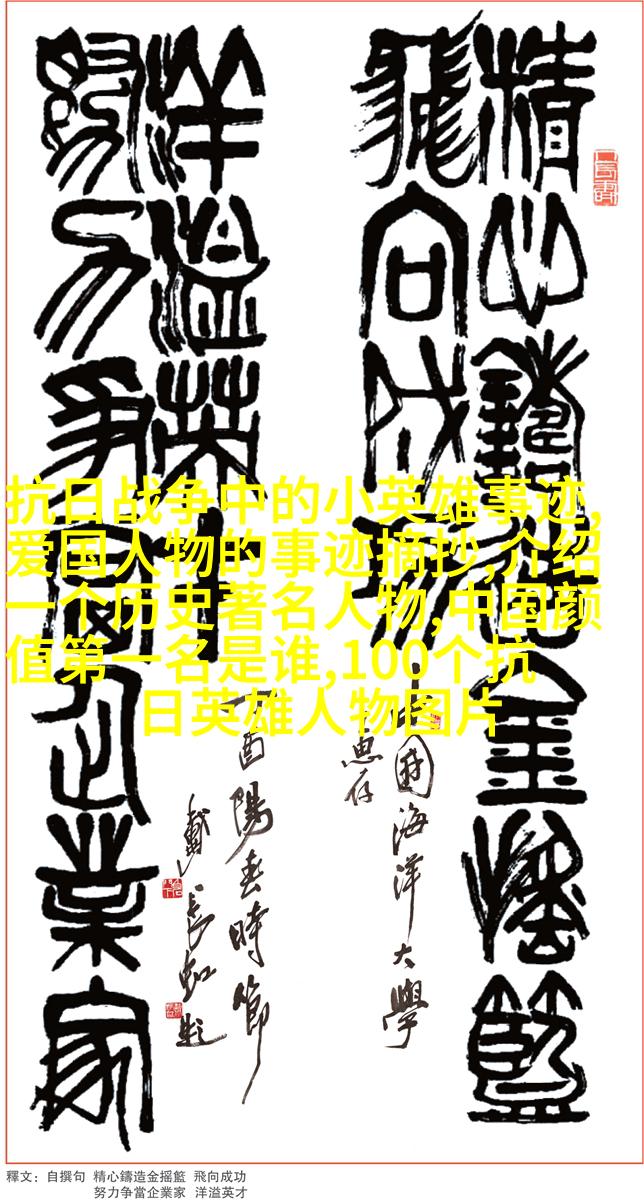 精心鑄造金摇籃
飛向成功
中國海洋大學
惠存
努力争當企業家
洋溢英才
丁酉陽春時節
戴長虹題
抗日战争中的小英雄事迹,
爱国人物的事迹摘抄,介绍
一个历史著名人物,中国颜
值第一名是谁,100个抗
日英雄人物图片
釋文：自撰句 精心鑄造金摇籃 飛向成功
努力争當企業家 洋溢英才